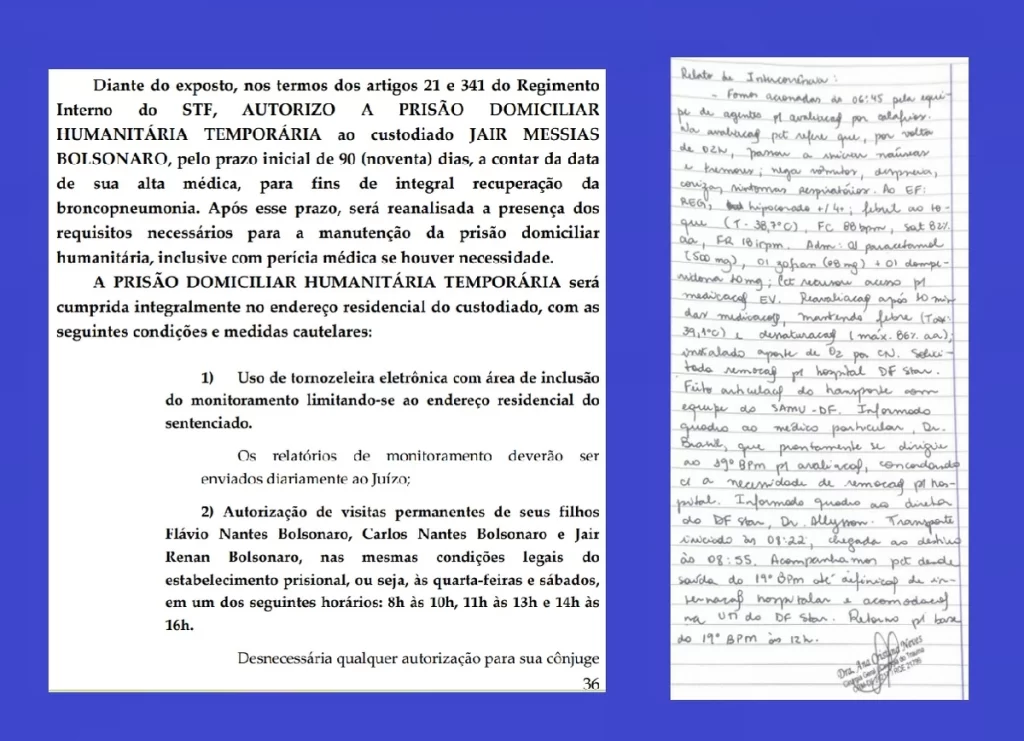 Diante do exposto, nos termos dos artigos 21 e 341 do Regimento
Interno do STF, AUTORIZO A PRISÃO DOMICILIAR
HUMANITÁRIA TEMPORÁRIA ao custodiado JAIR MESSIAS
BOLSONARO, pelo prazo inicial de 90 (noventa) dias, a contar da data
de sua alta médica, para fins de integral recuperação da
broncopneumonia. Após esse prazo, será reanalisada a presença dos
requisitos necessários para a manutenção da prisão domiciliar
humanitária, inclusive com perícia médica se houver necessidade.
A PRISÃO DOMICILIAR HUMANITÁRIA TEMPORÁRIA será
cumprida integralmente no endereço residencial do custodiado, com as
seguintes condições e medidas cautelares:
1) Uso de tornozeleira eletrônica com área de inclusão
do monitoramento limitando-se ao endereço residencial do
sentenciado.
Os relatórios de monitoramento deverão ser
enviados diariamente ao Juízo;
2) Autorização de visitas permanentes de seus filhos
Flávio Nantes Bolsonaro, Carlos Nantes Bolsonaro e Jair
Renan Bolsonaro, nas mesmas condições legais do
estabelecimento prisional, ou seja, às quarta-feiras e sábados,
em um dos seguintes horários: 8h às 10h, 11h às 13h e 14h às
16h.
Desnecessária qualquer autorização para sua cônjuge
36
Relato de Intercorrência:
- Fomos acionados às 06:45 pela equi-
pe de agentes p/ avaliação por calafrios.
Na avaliação pct refere que, por volta
de 02h, passou a iniciar náuseas
e tremores; nega vômitos, dispneia,
coriza, sintomas respiratórios. Ao EF:
REG, hipocorado +/4+; febril ao to-
que (T - 38,7°C), FC 88 bpm, sat 82%
aa, FR 18 irpm. Adm: 01 paracetamol
(500 mg), 01 zofran (08 mg) + 01 dompe-
ridona 10mg; Pct recusou acesso p/
medicação EV. Reavaliação após 10 min
das medicações, mantendo febre (Tax:
39,1°C) e dessaturação (máx. 86% aa);
instalado aporte de O2 por CN. Solici-
tada remoção p/ hospital DF Star.
Feito articulação do transporte com
equipe do SAMU-DF. Informado
quadro ao médico particular, Dr.
Brasil, que prontamente se dirigiu
ao 19º BPM p/ avaliação, concordando
c/ a necessidade de remoção p/ hos-
pital. Informado quadro ao diretor
do DF Star, Dr. Allysson. Transporte
iniciado às 08:22, chegada ao destino
às 08:55. Acompanhamos pct desde
saída do 19º BPM até definição de in-
ternação hospitalar e acomodação
na UTI do DF Star. Retorno p/ base
do 19º BPM às 12h.
Dra. Ana Cristina Neves